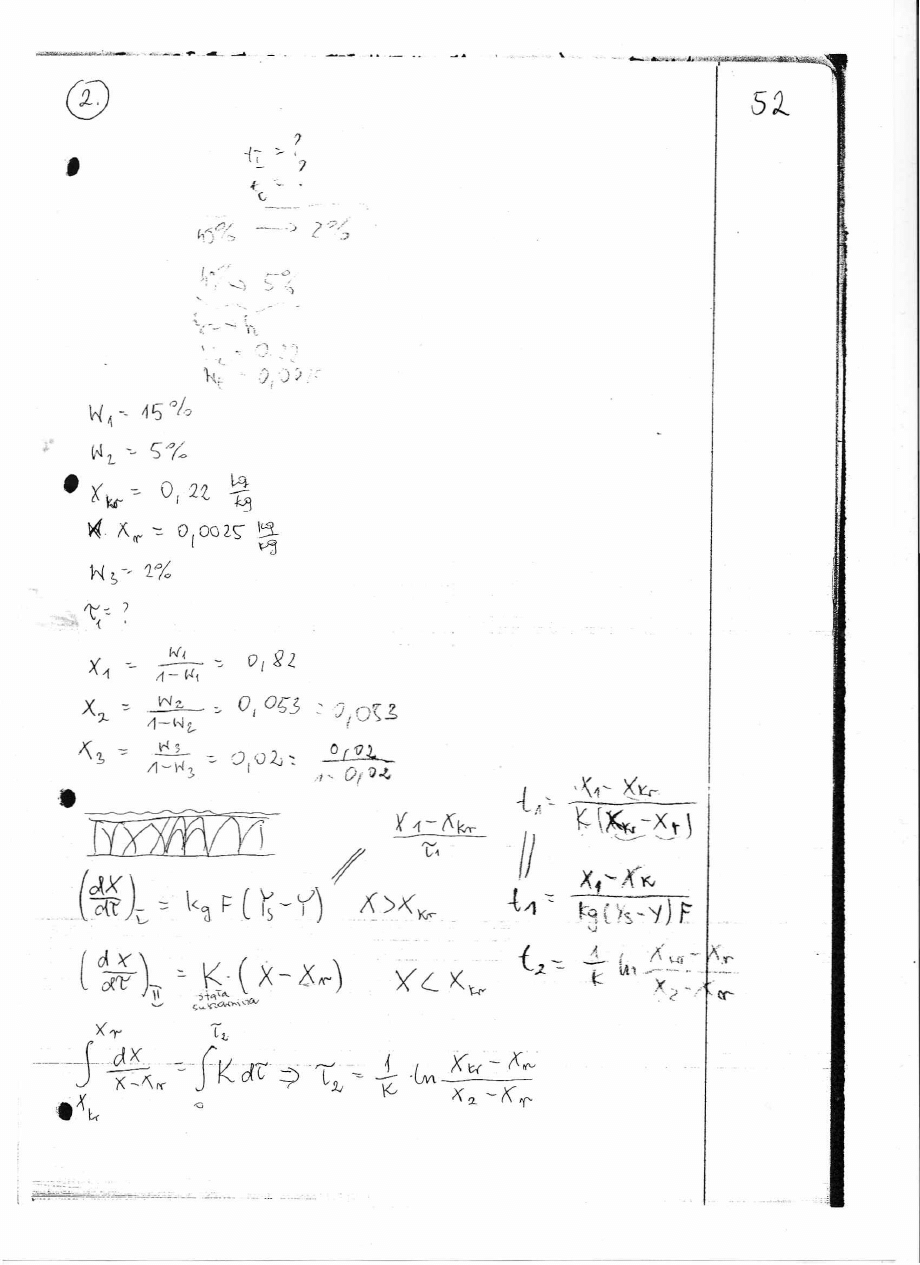 2.
52
t_I = ?
t_c = ?
45% → 2%
→ 5%
= 0,22
W_1 = 15%
W_2 = 5%
X_kr = 0,22 kg/kg
X_r = 0,0025 kg/kg
W_3 = 2%
τ_1 = ?
X_1 = W_1/(1-W_1) = 0,82
X_2 = W_2/(1-W_2) = 0,053 = 0,053
X_3 = W_3/(1-W_3) = 0,02 = 0,02/(1-0,02)
(X_1 - X_kr)/τ_1
t_1 = (X_1 - X_kr)/(K(X_kr - X_r))
(dX/dτ)_I = kg F (Y_s - Y) X > X_kr
t_1 = (X_1 - X_k)/(kg(Y_s - Y)F)
(dX/dτ)_II = K · (X - X_r) X < X_kr
stała suszenia
t_2 = 1/K ln (X_kr - X_r)/(X_2 - X_r)
∫_{X_kr}^{X_r} dX/(X - X_r) = ∫_0^{τ_2} K dτ ⇒ τ_2 = 1/K · ln (X_kr - X_r)/(X_2 - X_r)